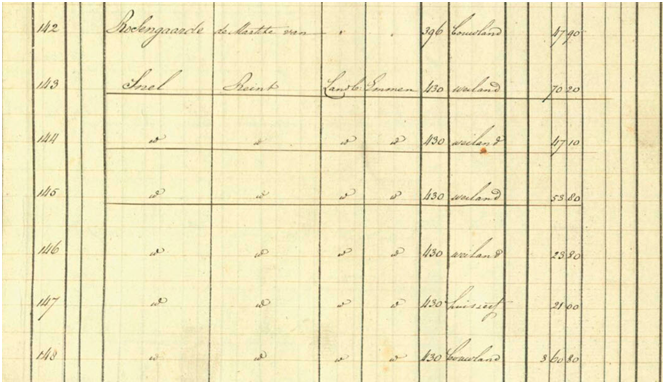 142 Rodengaarde de Marktte van " " 396 bouwland 47 90
143 Snel Reint Landb Emmen 430 weiland 70 20
144 " " " " 430 weiland 47 10
145 " " " " 430 weiland 53 80
146 " " " " 430 weiland 23 80
147 " " " " 430 huis erf 21 00
148 " " " " 430 bouwland 3 60 80